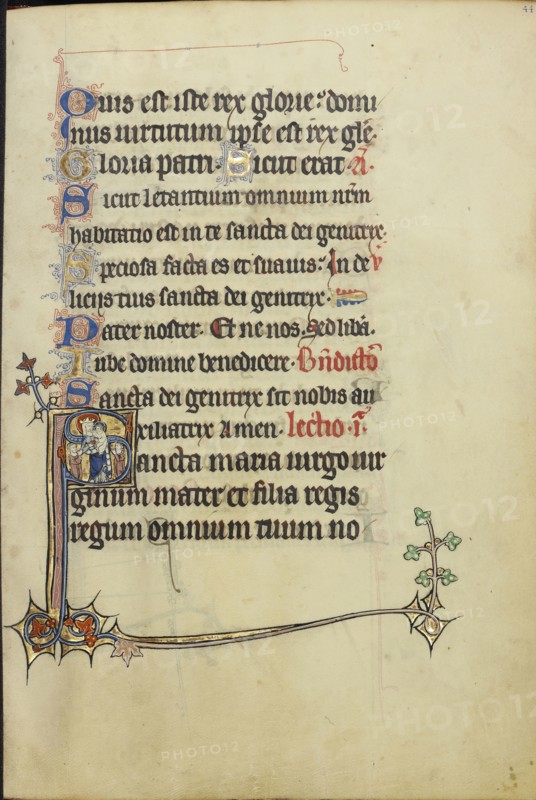 44
Quis est iste rex glorie: domi
nus uirtutum ipse est rex glē.
Gloria patri. Sicut erat. A.
Sicut letantium omnium nr̄m
habitatio est in te sancta dei genitrix.
Speciosa facta es et suauis: In de v̄
liciis tuis sancta dei genitrix.
Pater noster. Et ne nos. Sed libā.
Iube domine benedicere. Bn̄dictō
Sancta dei genitrix sit nobis au
xiliatrix Amen. lectio .i.
Sancta maria uirgo uir
ginum mater et filia regis
regum omnium tuum no
PHOTO12